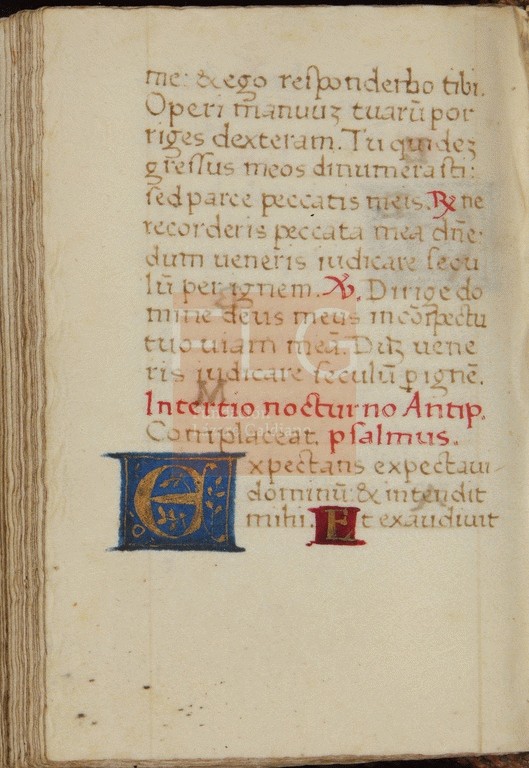 me: & ego respondebo tibi.
Operi manuuꝫ tuarū por
riges dexteram. Tu quideꝫ
gressus meos dinumerasti:
sed parce peccatis meis. ℞ ne
recorderis peccata mea dn̄e.
dum ueneris iudicare secu
lū per ignem. ℣. Dirige do
mine deus meus in cōspectu
tuo uiam meā. Dū uene
ris iudicare seculū ꝑ ignē.
In tertio nocturno Antip.
Complaceat. psalmus.
Expectans expectaui
dominū: & intendit
mihi. Et exaudiuit